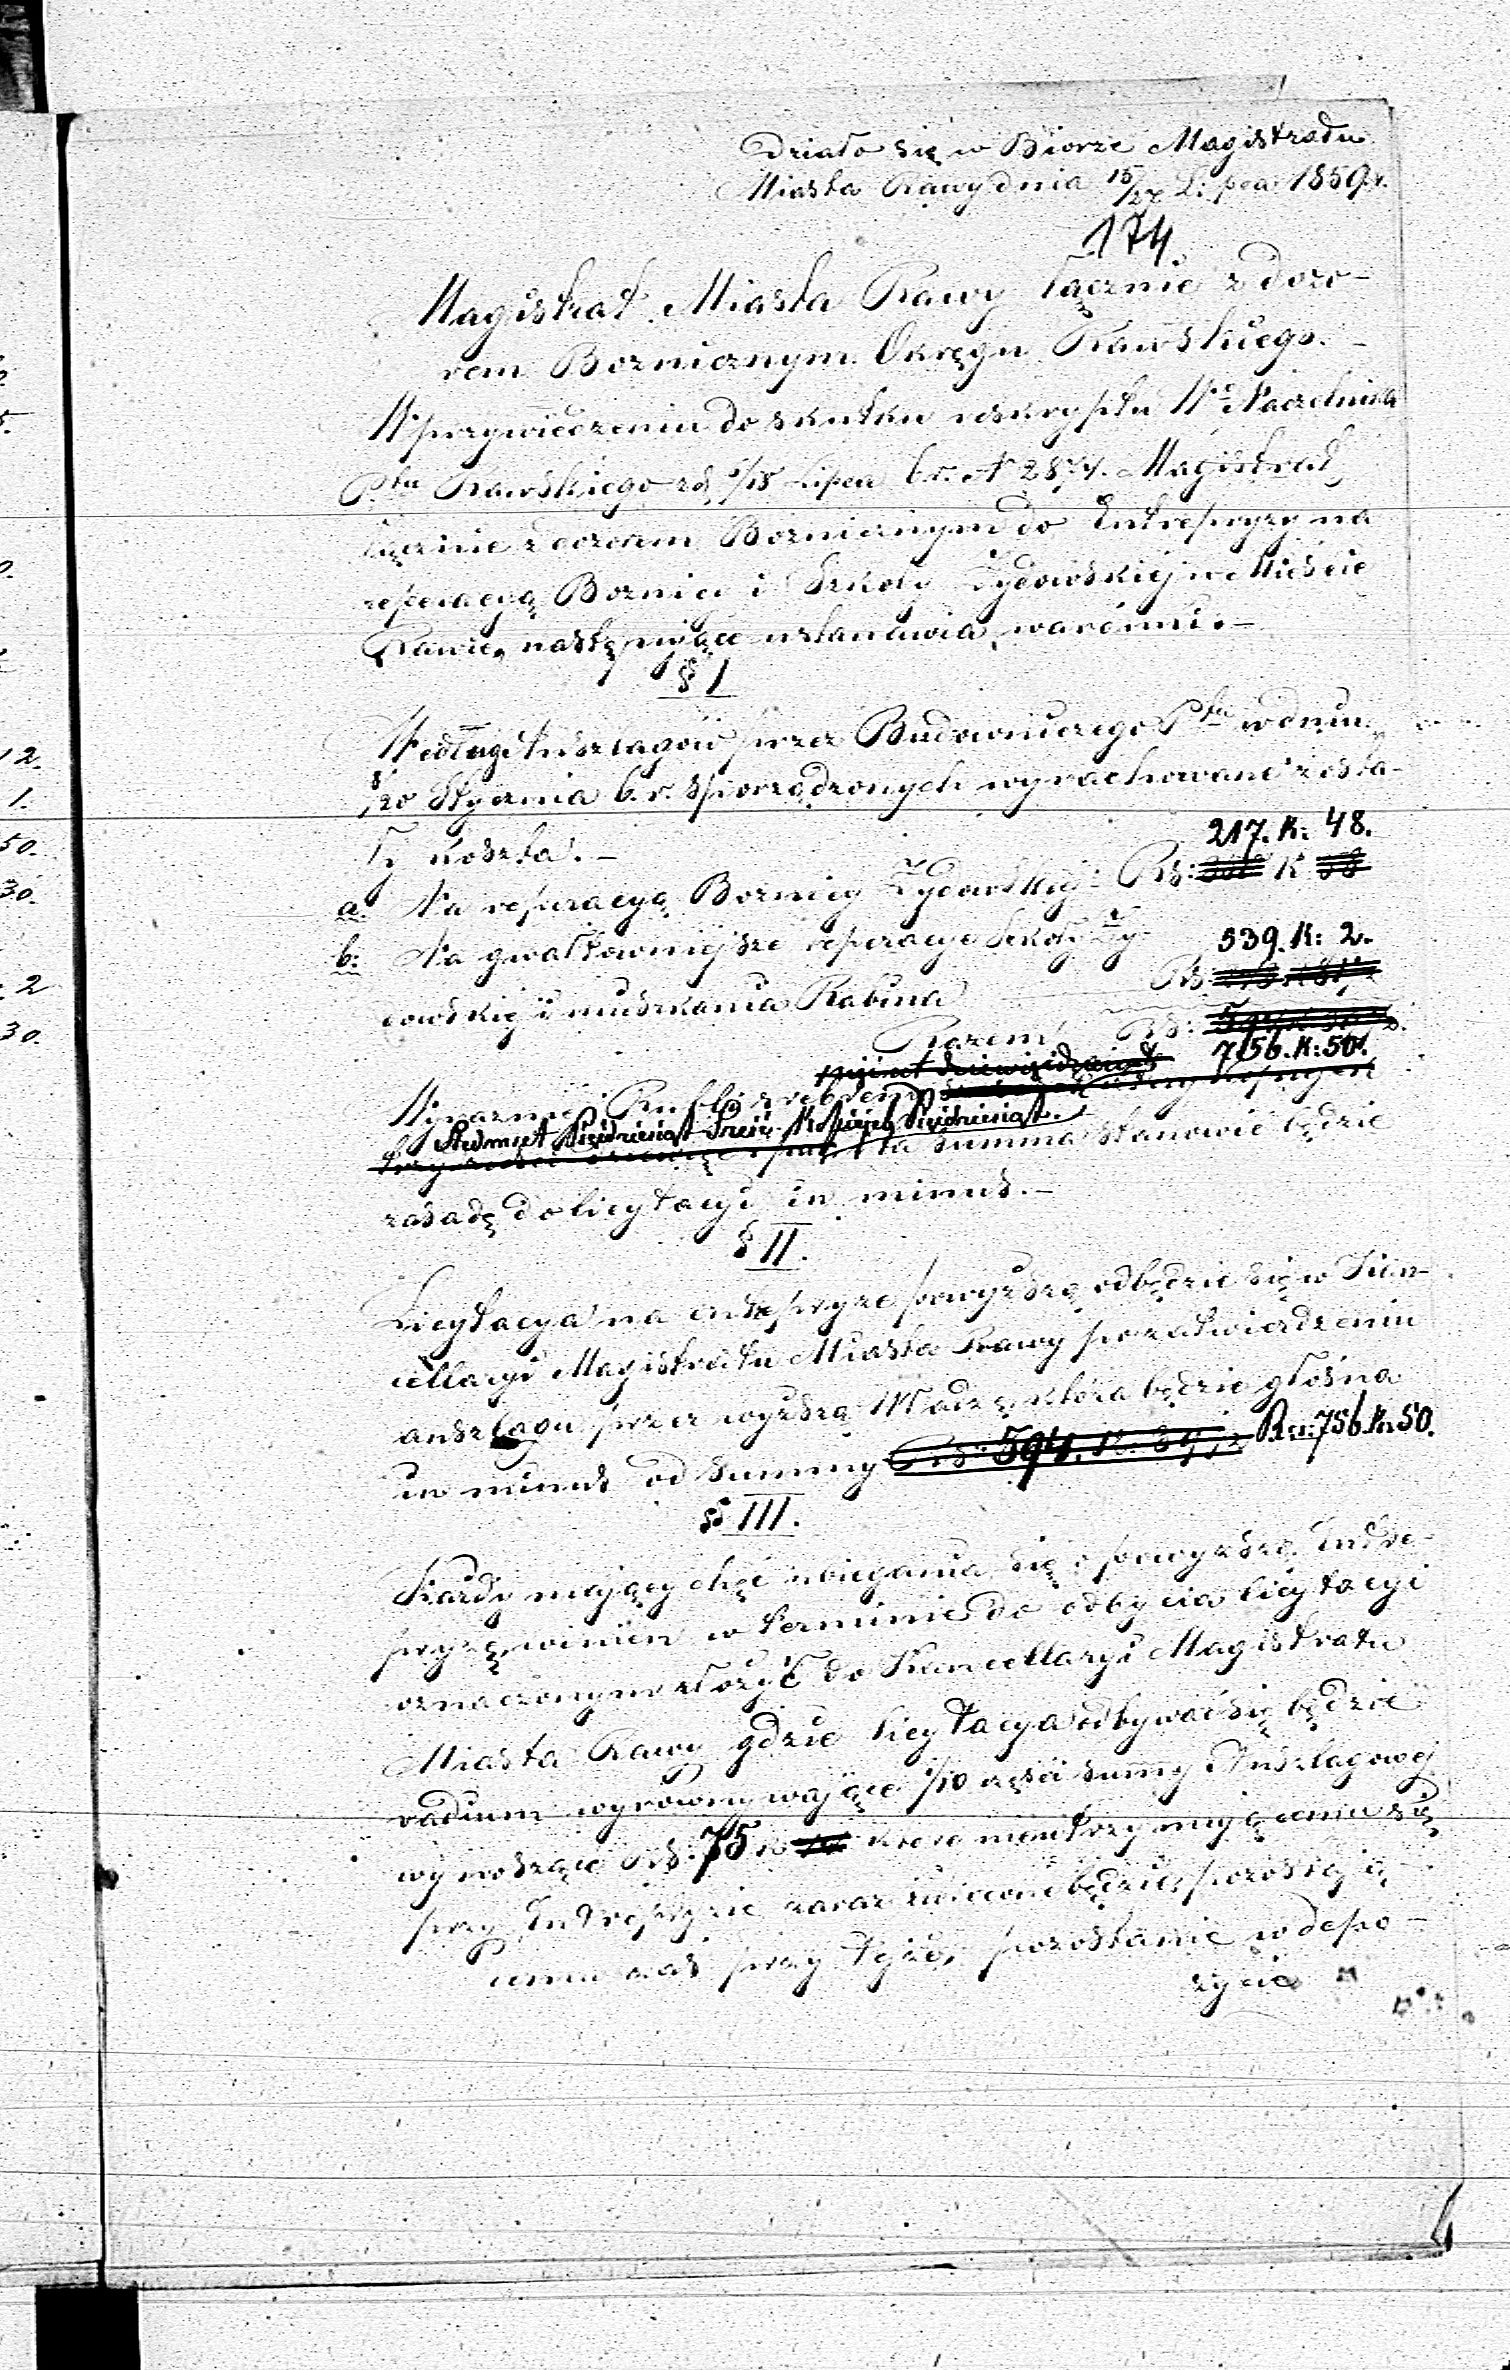 Działo się w Biorze Magistratu
Miasta Rawy dnia 15/27 Lipca 1859 r.
174
Magistrat Miasta Rawy łącznie z dozo-
rem Bozniczym Okręgu Rawskiego.-
W przywiedzeniu do skutku reskryptu Wo Naczelnika
Ptu Rawskiego z d. /18 Lipca b.r. N 2874. Magistrat
łącznie z dozorem Bozniczym do Entrepryzy na
reperacyą Boznicy i Szkoły Żydowskiej w Mieście
Rawie, następujące ustanawia warónki.-
§ I
Według Anszlagów przez Budowniczego Ptu w dniu
8/20 Stycznia b.r. sporządzonych wyrachowane zosta-
ły koszta.-
217. K: 48.
a. Na reperacyą Boznicy Żydowskiej Rs: K 58
b. Na gwałtowniejsze reperacye Szkoły Ży- 539. K: 2.
dowskiej i mieszkania Rabina Rs
Razem Rs: 594
756. K: 50.
pięćset dziewięćdziesiąt
Wyraźnie Rubli srebrem
Siedmset Pięćdziesiąt Sześć Kopiejek Pięćdziesiąt.
ta summa stanowić będzie
zasadę do licytacyi in minus.-
§ II.
Licytacya na entrepryzę powyższą odbędzie się w Kan-
cellaryi Magistratu Miasta Rawy po zatwierdzeniu
anszlagu przez wyższą Władzę która będzie głośna
in minus od summy Rs: 594. K. 39 1/2 Rs: 756. K. 50.
§ III.
Każdy mający chęć ubiegania się o powyższą Entre-
pryzę, winien w terminie do odbycia licytacyi
oznaczonym złożyć do Kancellaryi Magistratu
Miasta Rawy gdzie licytacya odbywać się będzie
vadium wyrównywające 1/10 części summy Anszlagowej
wynoszące Rs: 75 k które nieutrzymującemu się
przy Entrepryzie zaraz zwrócone będzie, pozostają-
cemu zaś przy tejże, pozostanie w depo-
zycie
12.
1.
50.
30.
2
30.